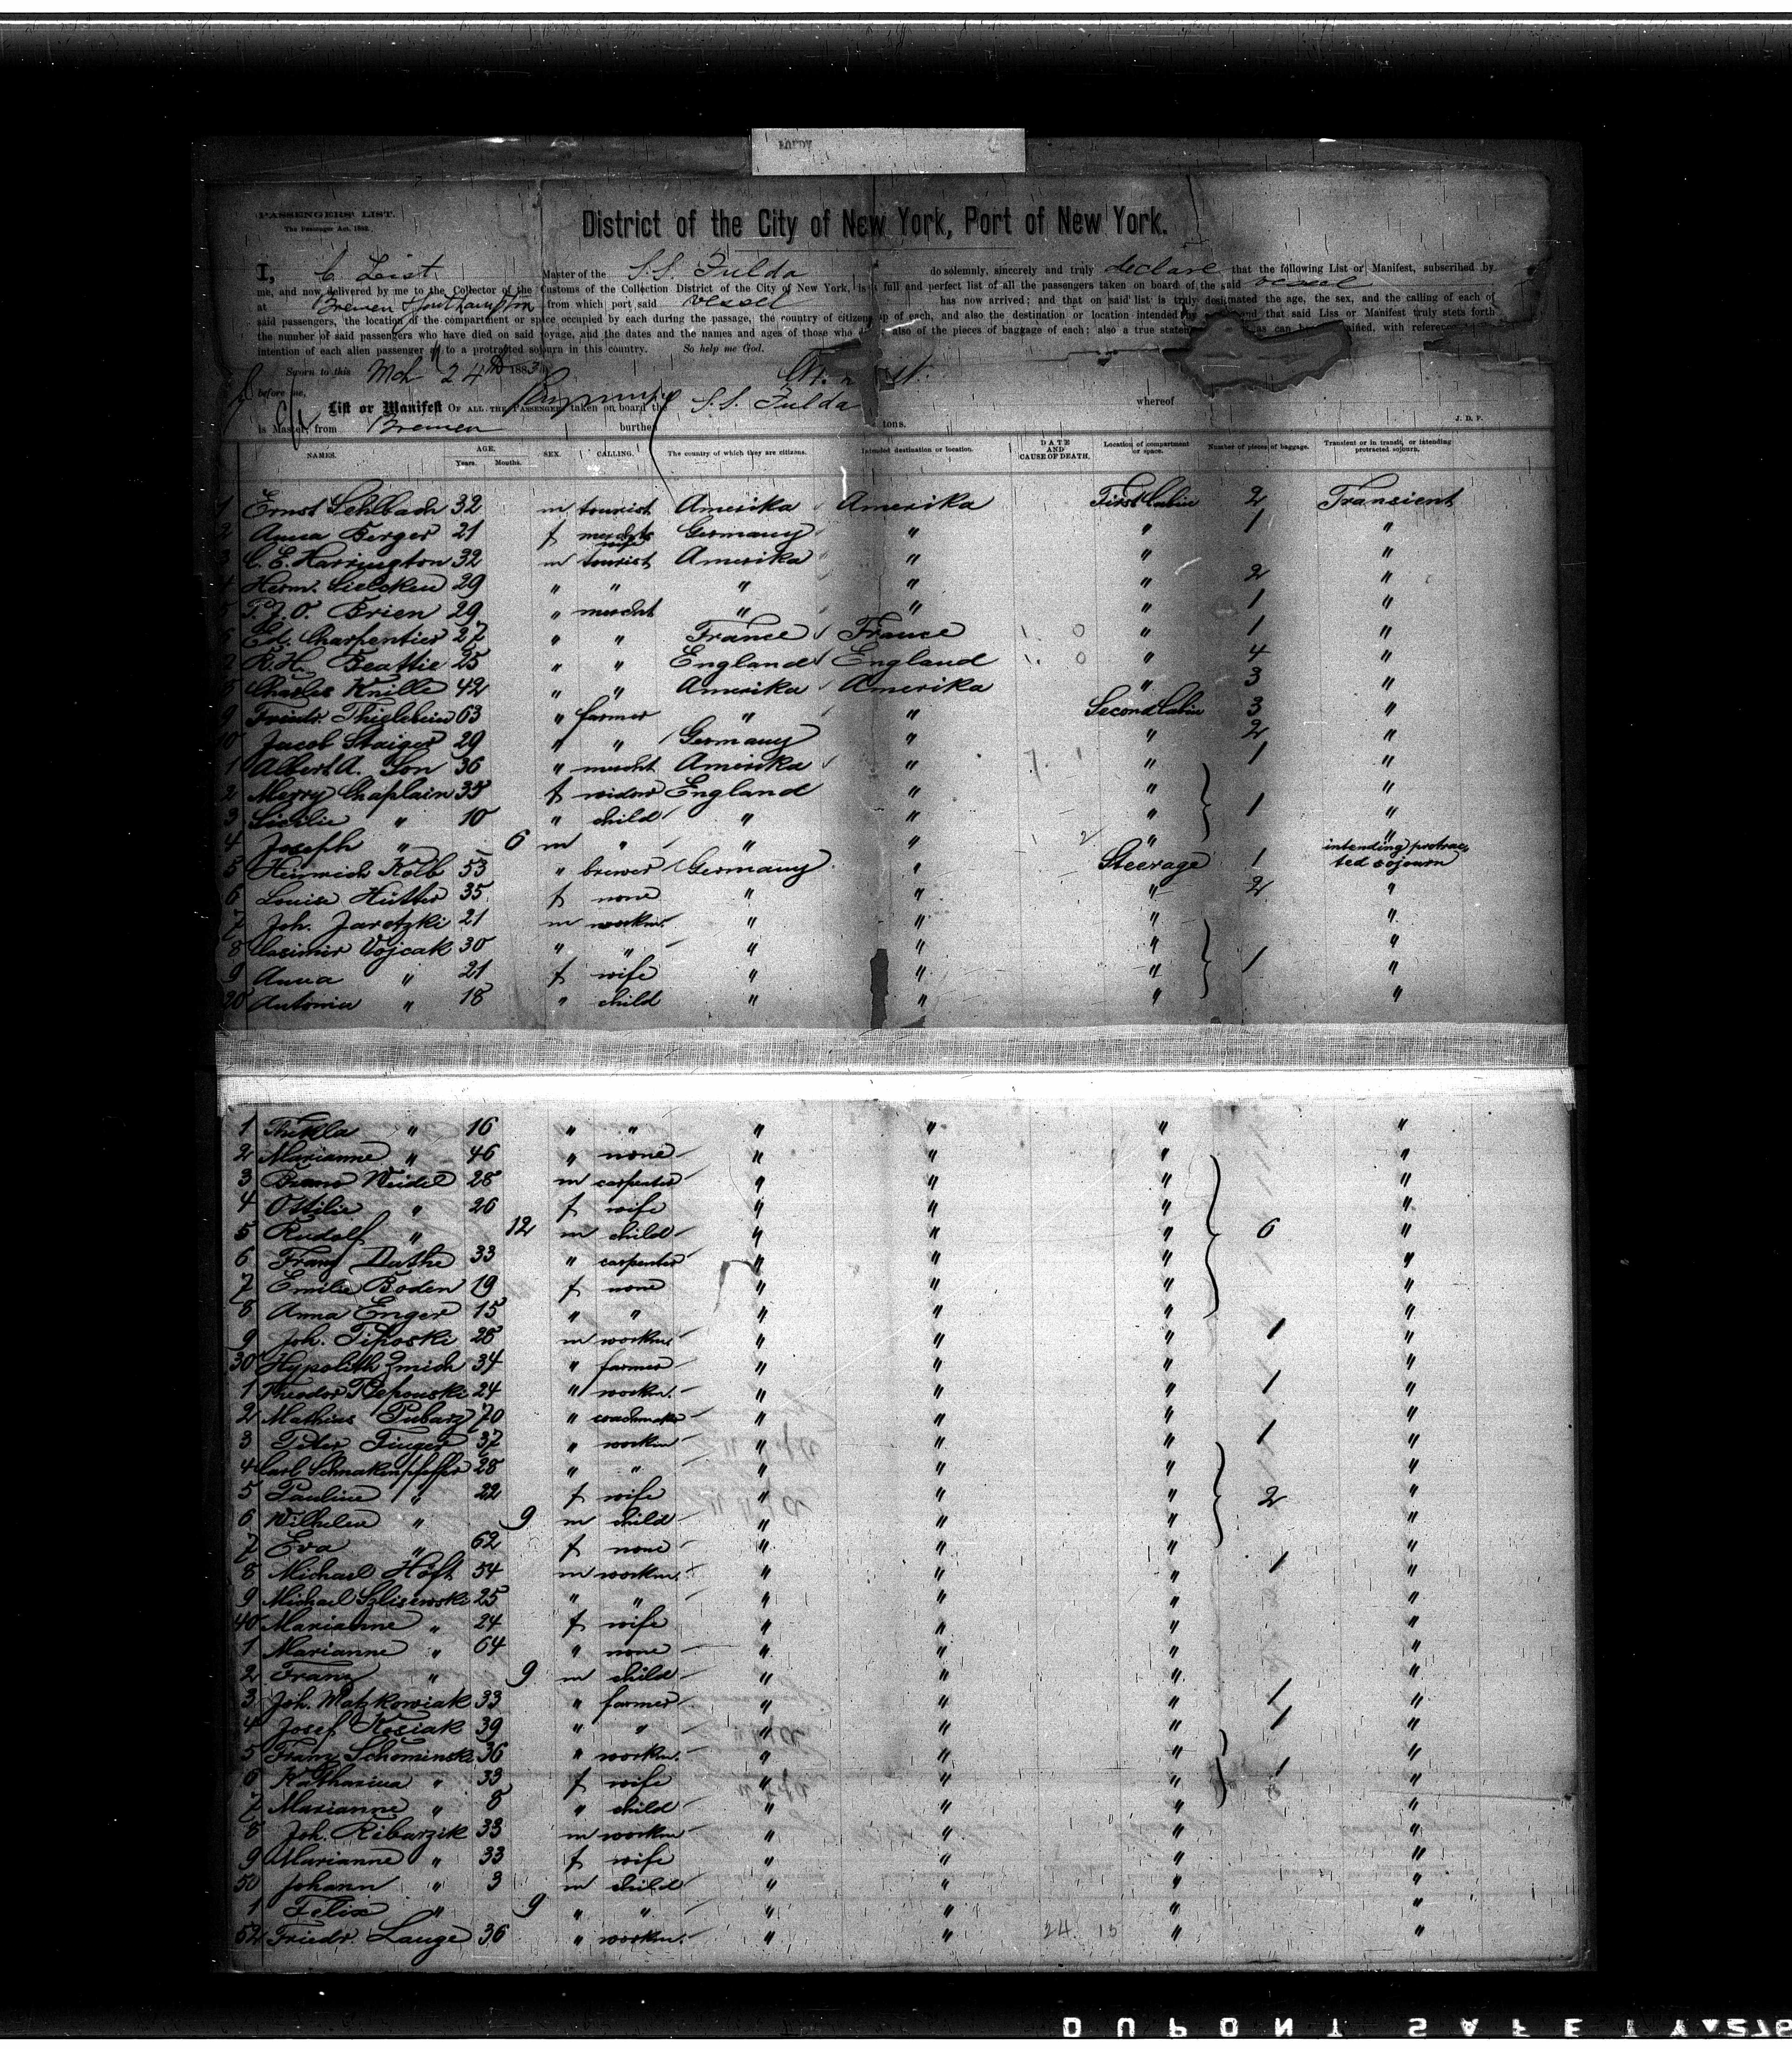 PASSENGERS' LIST.
The Passenger Act, 1882.
District of the City of New York, Port of New York.
I, C. Leist Master of the S.S. Fulda do solemnly, sincerely and truly declare that the following List or Manifest, subscribed by
me, and now delivered by me to the Collector of the Customs of the Collection District of the City of New York, is a full and perfect list of all the passengers taken on board of the said vessel
at Bremen & Southampton from which port said vessel has now arrived; and that on said list is truly designated the age, the sex, and the calling of each of
said passengers, the location of the compartment or space occupied by each during the passage, the country of citizenship of each, and also the destination or location intended by and that said Liss or Manifest truly stets forth
the number of said passengers who have died on said voyage, and the dates and the names and ages of those who also of the pieces of baggage of each; also a true as can be with
intention of each alien passenger to a protracted sojourn in this country. So help me God.
Sworn to this Mch 24th 1883
before me,
List or Manifest OF ALL THE PASSENGERS taken on board the S.S. Fulda whereof
is Master, from Bremen burthen tons. J. D. P.
NAMES. AGE. Years. Months. SEX. CALLING. The country of which they are citizens. Intended destination or location. DATE AND CAUSE OF DEATH. Location of compartment or space. Number of pieces of baggage. Transient or in transit, or intending protracted sojourn.
1 Ernst Sehlbach 32 m tourist Amerika Amerika First Cabin 2 Transient
2 Anna Berger 21 f merchts wife Germany " " 1 "
3 C. E. Harrington 32 m tourist Amerika " " "
4 Herm. Sielcken 29 " " " " " 2 "
5 P. J. O. Brien 29 " mercht " " " 1 "
6 Ed. Charpentier 27 " " France France " 1 "
7 R. H. Beattie 25 " " England England " 4 "
8 Charles Knille 42 " " Amerika Amerika " 3 "
9 Friedr. Thielebein 63 " farmer " " Second Cabin 3 "
10 Jacob Staiger 29 " " Germany " " 2 "
1 Albert A. Son 36 " mercht Amerika " " 1 "
2 Merry Chaplain 35 f widow England " " "
3 Sicilie " 10 " child " " " 1 "
4 Joseph " 6 m " " " " "
5 Heinrich Kolb 53 " brewer Germany " Steerage 1 intending protracted sojourn
6 Louise Hütter 35 f none " " " 2 "
7 Joh. Jarotzki 21 m workm. " " " "
8 Casimir Vojcak 30 " " " " " "
9 Anna " 21 f wife " " " 1 "
20 Antonia " 18 " child " " " "
1 Thekla " 16 " " " " " "
2 Marianne " 46 " none " " " "
3 Bruno Weidel 28 m carpenter " " " "
4 Ottilie " 26 f wife " " " "
5 Rudolf " 12 m child " " " 6 "
6 Franz Dathe 33 " carpenter " " " "
7 Emilie Boden 19 f none " " " "
8 Anna Enger 15 " " " " " "
9 Joh. Tiposki 28 m workm. " " " 1 "
30 Hypolith Zmich 34 " farmer " " " "
1 Theodor 24 " workm. " " " 1 "
2 Mathias Pubarz 70 " coachmaker " " " "
3 Peter Finger 37 " workm " " " 1 "
4 Carl Schnakenpfeffer 28 " " " " " "
5 Pauline " 22 f wife " " " 2 "
6 Wilhelm " 9 m child " " " "
7 Eva " 62 f none " " " "
8 Michael Höft 54 m workm. " " " 1 "
9 Michael Szlisewski 25 " " " " " "
40 Marianne " 24 f wife " " " "
1 Marianne " 64 " none " " " "
2 Franz " 9 m child " " " "
3 Joh. Matzkowiak 33 " farmer " " " 1 "
4 Josef Kosiak 39 " " " " " 1 "
5 Franz Schominski 36 " workm. " " " "
6 Katharina " 33 f wife " " " 1 "
7 Marianne " 8 " child " " " "
8 Joh. Ribarzik 33 m workm " " " "
9 Marianne " 33 f wife " " " "
50 Johann " 3 m child " " " "
1 Felix " 9 " " " " " "
52 Friedr. Lange 36 " workm. " " 24 15 " "
DUPONT SAFETY